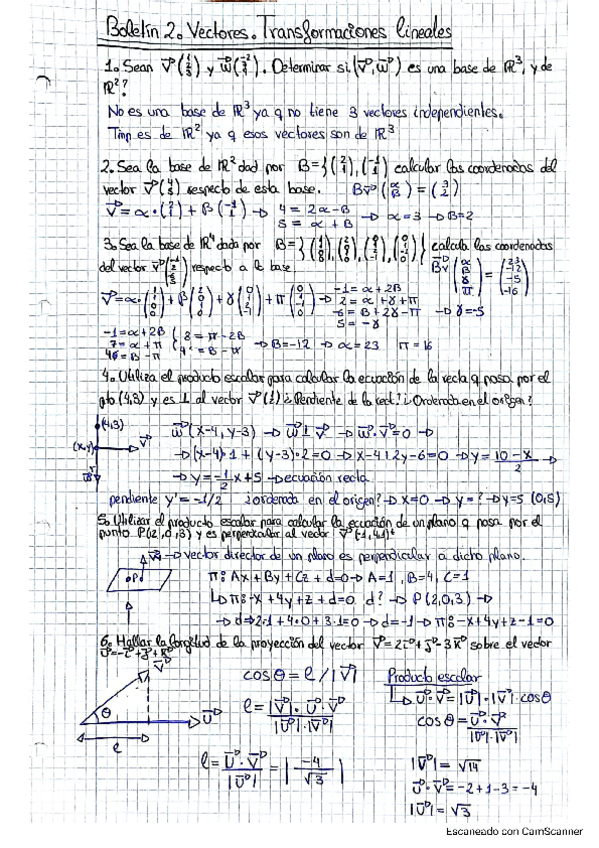 Boletín 2. Vectores. Transformaciones lineales
1. Sean v⃗ y w⃗. Determinar si (v⃗, w⃗) es una base de ℝ³, y de
ℝ²?
No es una base de ℝ³ ya q no tiene 3 vectores independientes.
Tmp es de ℝ² ya q esos vectores son de ℝ³
2. Sea la base de ℝ² dad por B={(2 1),(-1 1)} calcular las coordenadas del
vector v⃗(4 5) respecto de esta base. Bv⃗(α β) = (3 2)
v⃗ = α·(2 1) + β(-1 1) → 4 = 2α-β
5 = α + β → α=3 → β=2
3. Sea la base de ℝ⁴ dada por B= calcula las coordenadas
del vector v⃗ respecto a la base.
-1 = α+2β
2 = α+γ+π
-6 = β+2γ-π
5 = -γ → γ=-5
-1=α+2β
7=α+π
→ β=-12 → α=23 π=16
4. Utiliza el producto escalar para calcular la ecuación de la recta q pasa por el
pto (4,3) y es ⊥ al vector v⃗(1 2) ¿Pendiente de la rect.? ¿Ordenada en el origen?
(4,3)
(x,y) v⃗
w⃗
w⃗(x-4, y-3) → w⃗⊥v⃗ → w⃗·v⃗=0 →
→(x-4)·1 + (y-3)·2=0 → x-4+2y-6=0 → y= 10-x / 2 →
→ y=-1/2 x+5 → ecuación recta
pendiente y'=-1/2 ¿ordenada en el origen? → x=0 → y=? → y=5 (0,5)
5. Utilizar el producto escalar para calcular la ecuación de un plano q pasa por el
punto P(2,0,3) y es perpendicular al vector v⃗(-1,4,1)ᵗ
→ vector director de un plano es perpendicular a dicho plano.
·P
π: Ax + By + Cz + d=0 → A=1, B=4, C=1
↳ π: -x + 4y + z + d=0 d? → P(2,0,3) →
→ d⇒2·1 + 4·0 + 3·1=0 → d=-1 → π: -x+4y+z-1=0
6. Hallar la longitud de la proyección del vector v⃗=2i⃗+j⃗-3k⃗ sobre el vector
u⃗=-i⃗+j⃗+k⃗
v⃗
θ
u⃗
l
cosθ = l / |v⃗|
l = |v⃗|·u⃗·v⃗ / |u⃗|·|v⃗|
l = u⃗·v⃗ / |u⃗| = |-4 / √3|
Producto escalar
↳ u⃗·v⃗=|u⃗|·|v⃗|·cosθ
cosθ = u⃗·v⃗ / |u⃗|·|v⃗|
|v⃗| = √14
u⃗·v⃗ = -2+1-3 = -4
|u⃗| = √3
Escaneado con CamScanner